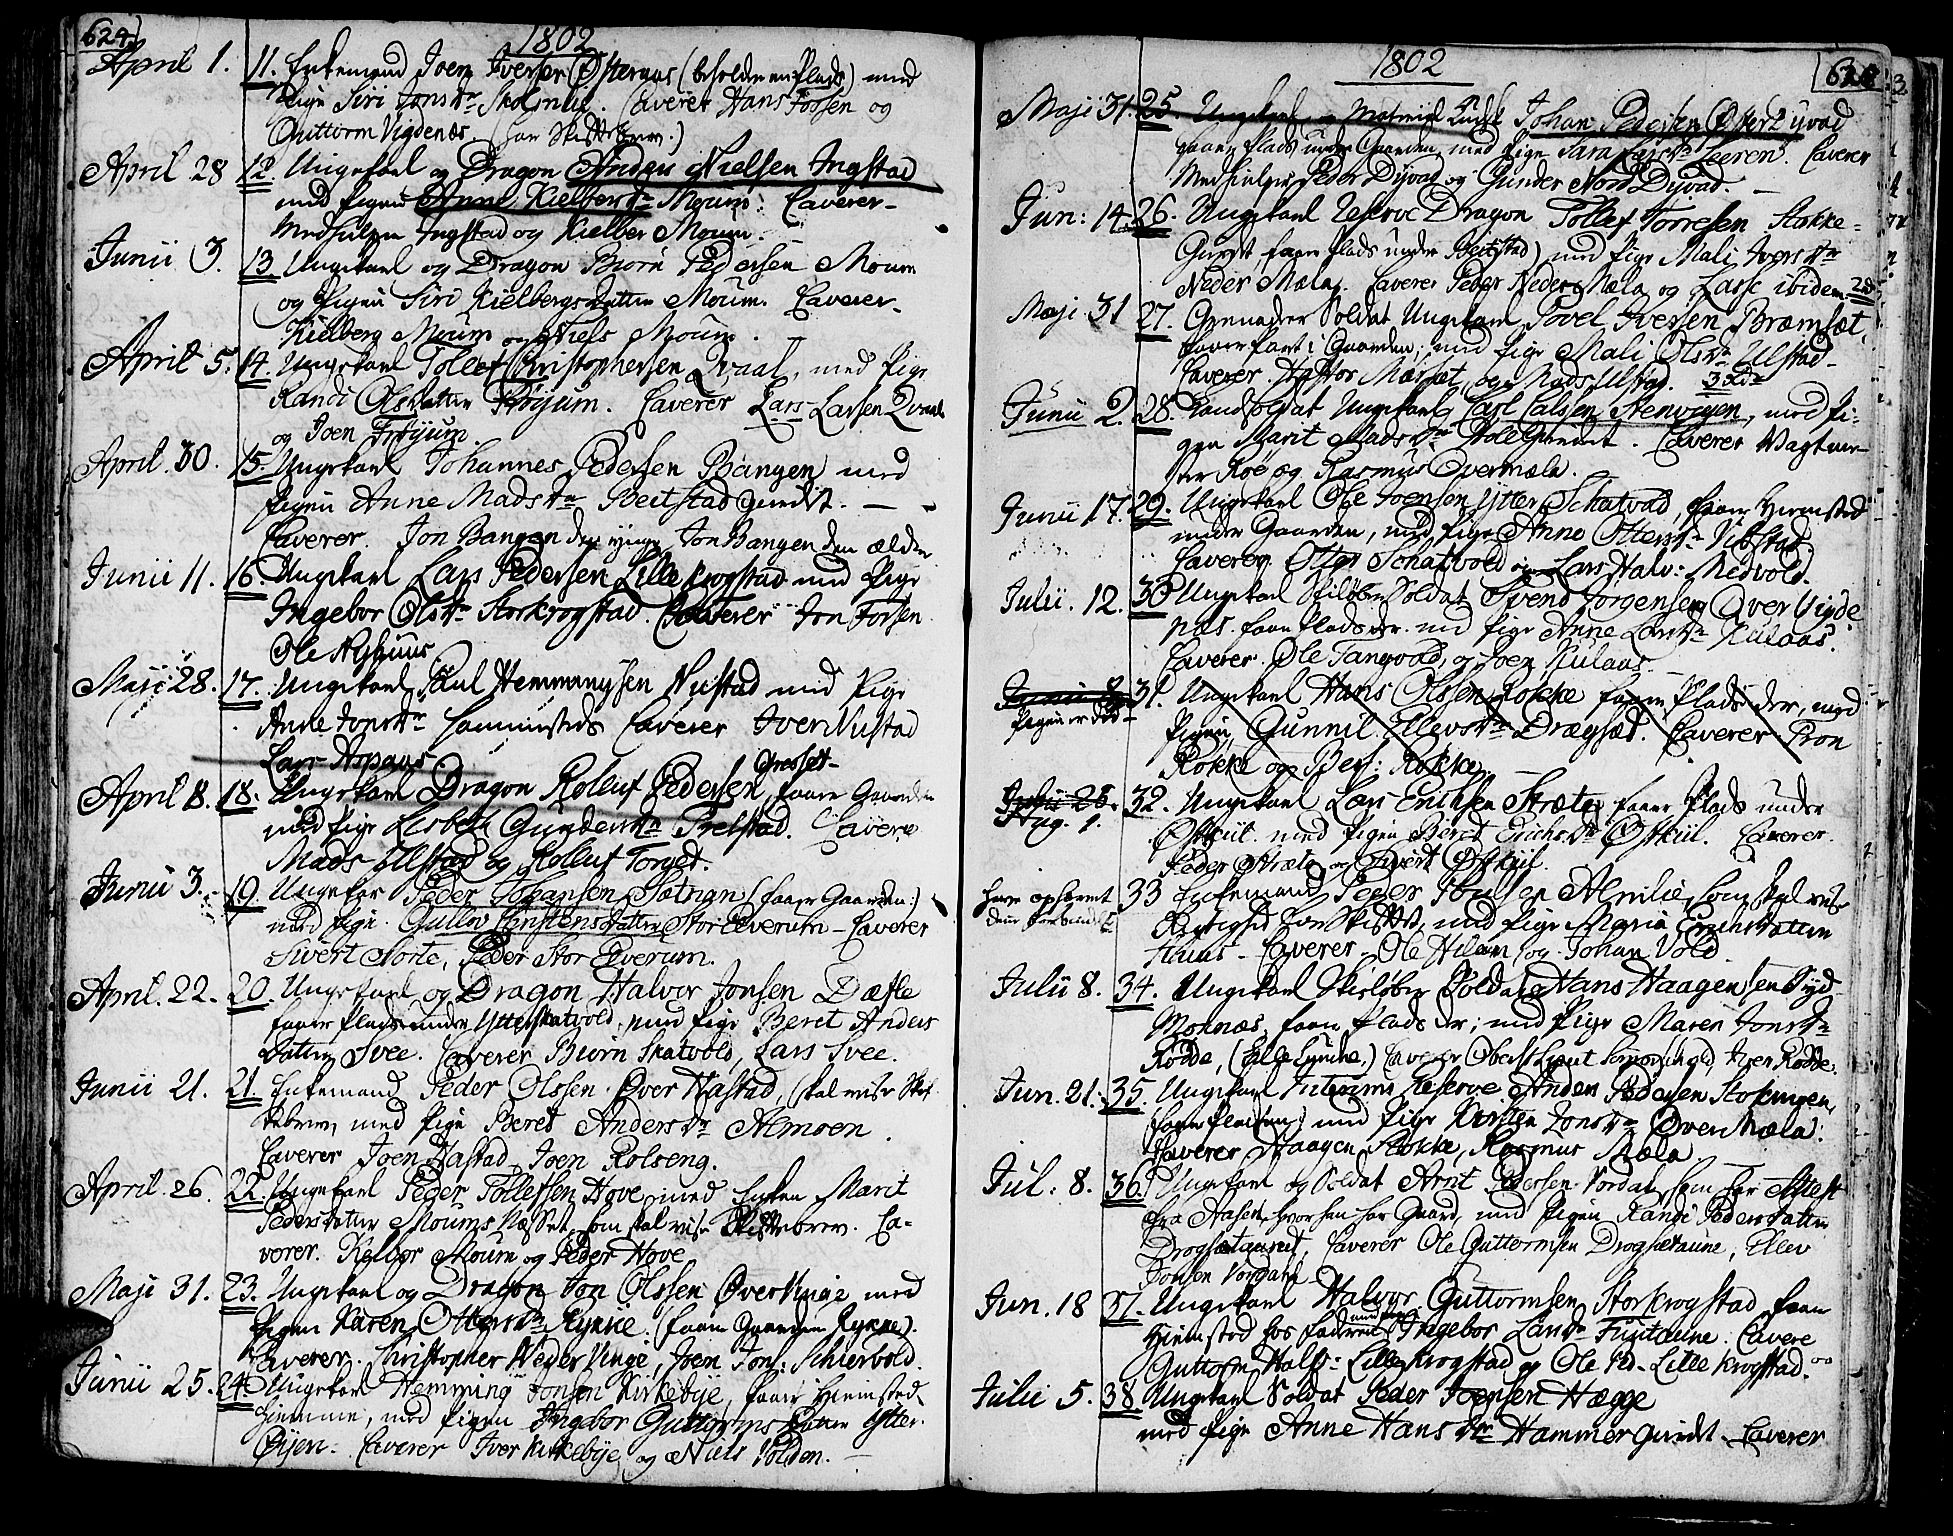 624
1802
April 1. 11. Enkemand Joen Iversen Østeraas (beholder en Plads) med
Pige Siri Jonsdr Skolsmlie. Caverer Hans Forsen og
Guttorm Vigdenæs. (har Skiftebrev.)
April 28 12. Ungekarl og Dragon Anders Nielsen Ingstad
med Pigen Anne Kielbersdr Moum. Caverer
Medhielper Ingstad og Kielber Moum.
Junii 3. 13. Ungekarl og Dragon Biørn Pedersen Moum
og Pigen Siri Kielbergsdatter Moum. Caverer
Kielberg Moum og Niels Moum.
April 5. 14. Ungekarl Tollef Christophersen Qvaal, med Pige
Randi Olsdatter Frøjum. Caverer Lars Larsen Qvaal
og Joen Frøjum.
April. 30. 15. Ungekarl Johannes Pedersen Bangen med
Pigen Anne Madsdr Beitstad Grindt.
Caverer Jon Bangen den yngre Jon Bangen den ældre
Junii 11. 16. Ungekarl Lars Pedersen Lille Krogstad med Pige
Ingebor Olsdr Storkrogstad. Caverer Jon Forsen
Ole Aglhuus
Maji 28. 17. Ungekarl Paul Hemmingsen Nustad med Pige
Anne Jonsdr sammesteds Caverer Iver Nustad
Lars Aspaas
April 8. 18. Ungekarl Dragon Rolluf Pedersen Gresset, faaer Gaarden
med Pige Lisbeth Gundersdr Prelstad. Cavere
Mads Ulstad og Rolluf Torget.
Junii 3. 19. Ungekar Peder Johansen Sætnan (faaer Gaarden.)
med Pige Gullov Christensdatter Stor Elverum - Caverer
Sivert Sorte, Peder Stor Elverum.
April. 22. 20. Ungekarl og Dragon Halvor Jonsen Dæfle
faaer Plads under Ytterskatvold, med Pige Beret Anders
datter Svee. Caverer Biørn Skatvold, Lars Svee.
Junii 21. 21. Enkemand Peder Olssen Øver Hastad, (skal vise Skif-
tebrev, med Pige Beret Andersdr Almoen.
Caverer Joen Hastad, Joen Rolseng.
April. 26. 22. Ungekarl Peder Tollefsen Hove, med Enken Marit
Pedersdatter Moumsnæsset, som skal vise Skiftebrev. Ca-
verer. Kelber Moum og Peder Hove
Maji 31. 23. Ungekarl og Dragon Jon Olssen Øvervinge med
Pigen Karen Ottersdr Rykke. (faaer Gaarden Rykke).
Caverer. Christopher Neder Vinge, Joen Jons: Schiervold.
Junii 25. 24. Ungekar Hemming Jonsen Kirkebye, faaer Hiemsted
hiemme, med Pigen Ingebor Guttormsdatter Ytter-
Øijen. Caverer Iver Kirkebye og Niels Volden.
1802
Maji 31. 25. Ungekarl Johan Pedersen Øster Dyvad
faaer Plads under Gaarden, med Pige Sara Larsdr Leeren. Caverer
Medhielper Peder Dyvad og Gunder Nord Dyvad.
Jun: 14. 26. Ungekarl Reserve Dragon Tollef Torresen Stokke-
Grindt faaer Plads under Beitstad) med Pige Mali Iversdr
Neder Mæla. Caverer Peder Neder Mæla og Lasse ibidem
Maji 31 27. Grenadeer Soldat Ungekarl Povel Iversen Bræmset
faaer Part i Gaarden, med Pige Mali Olsdr Ulstad
Caverer Hastor Marset, og Mads Ulstad. 3 Rd
Junii 2. 28. Landsoldat Ungekarl Carl Calsen Stenvigen, med Pi-
gen Marit Madsdr HolleGrindet. Caverer Vagtme-
ster Roe og Rasmus Overmæla.
Junii 17. 29. Ungekarl Ole Joensen Ytter Schatvold, faaer Hiemsted
under Gaarden, med Pige Anne Ottersdr Vibstad
Caverer Otter Schatvold og Lars Halv: Medvold.
Julii. 12. 30 Ungekarl Skiløber Soldat Svend Jørgensen Over Vigde
næs. faaer Plads der. med Pige Anne Larsdr Kulaas.
Caverer Ole Tangvold, og Joen Kulaas.
Pigen er død
31. Ungekarl Hans Olssen Rokke faaer Plads der, med
Pigen Gunnil Ellevsdr Drægset. Caverer Tron
Rokke og Bers: Rokke
Julii 25.
Aug. 1. 32. Ungekarl Lars Erichsen Stræte faaer Plads under
Øfskiit. med Pigen Beret Erichsdr Øfstkiil. Caverer.
Peder Stræte og Sivert Øfstkiil.
have ophævet
deres forbindelse
33 Enkemand Peder Jonssen Almlie, som skal vise
Rigtighed for Skiftet, med Pige Maria Erichsdatter
Huus - Caverer Ole Hilam og Johan Vold
Julii 8. 34. Ungekarl Skieløber Soldat Hans Haagensen Syd
Moknæs, faaer Plads der; med Pige Maren Jonsdr
Rodde, Caverer Oberstlieut Iver Rodde.
Jun. 21. 35. Ungekarl Interims Reserve Anders Pedersen Stokmoen,
(faaer Pladsen,) med Pige Kirsten Jonsdr Øver Mæla.
Caverer Haagen Stokke, Rasmus Mæla.
Jul: 8. 36. Ungekarl og Soldat Arnt Pedersen Vordal, som har Attest
fra Aasen, hvor han har Gaard, med Pigen Randi Pedersdatter
Drogsetaunet, Caverer Ole Guttormsen Drogsetaune, Ellev
Jonsen Vordahl.
Jun. 18 37. Ungekarl Halvor Guttormsen Storkrogstad, faaer
Hiemsted hos Faderen med Pige Ingebor Larsdr Fuglaune. Cavere
Guttorm Halfs: Lille Krogstad og Ole Ped- Lille Krogstad.
Julii 5. 38 Ungekarl Soldat Peder Joensen Hægge
med Pige Anne Hansdr Hammer Grindt. Caverer